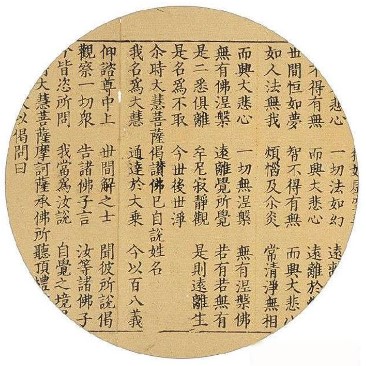 大悲心 一切法如幻 遠離
不得有無 而興大悲心 遠離於
世間恒如夢 智不得有無 而興大悲心
如人法無我 煩惱及尒炎 常清淨無相
而興大悲心 一切無涅槃 無有涅槃佛
無有佛涅槃 遠離覺所覺 若有若無有
是二悉俱離 牟尼寂靜觀 是則遠離生
是名為不取 今世後世淨
尒時大慧菩薩偈讚佛已自說姓名
我名為大慧 通達於大乘 今以百八義
仰諮尊中上 世間解之士 聞彼所說偈
觀察一切眾 告諸佛子言 汝等諸佛子
今皆恣所問 我當為汝說 自覺之境
時大慧菩薩摩訶薩承佛所聽頂禮
以偈問曰